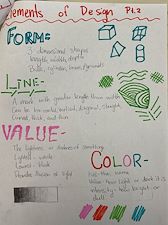 Elements of Design Pt.2
FORM:
3-dimensional shapes
length, width, depth
Balls, cylinders, boxes, pyramids
LINE-
A mark with greater length than width
Can be horizontal, vertical, diagonal, straight
curved, thick, and thin
VALUE-
The lightness or darkness of something
Lightest - white
COLOR-
value- how light or dark it is
intensity- how bright or
dull